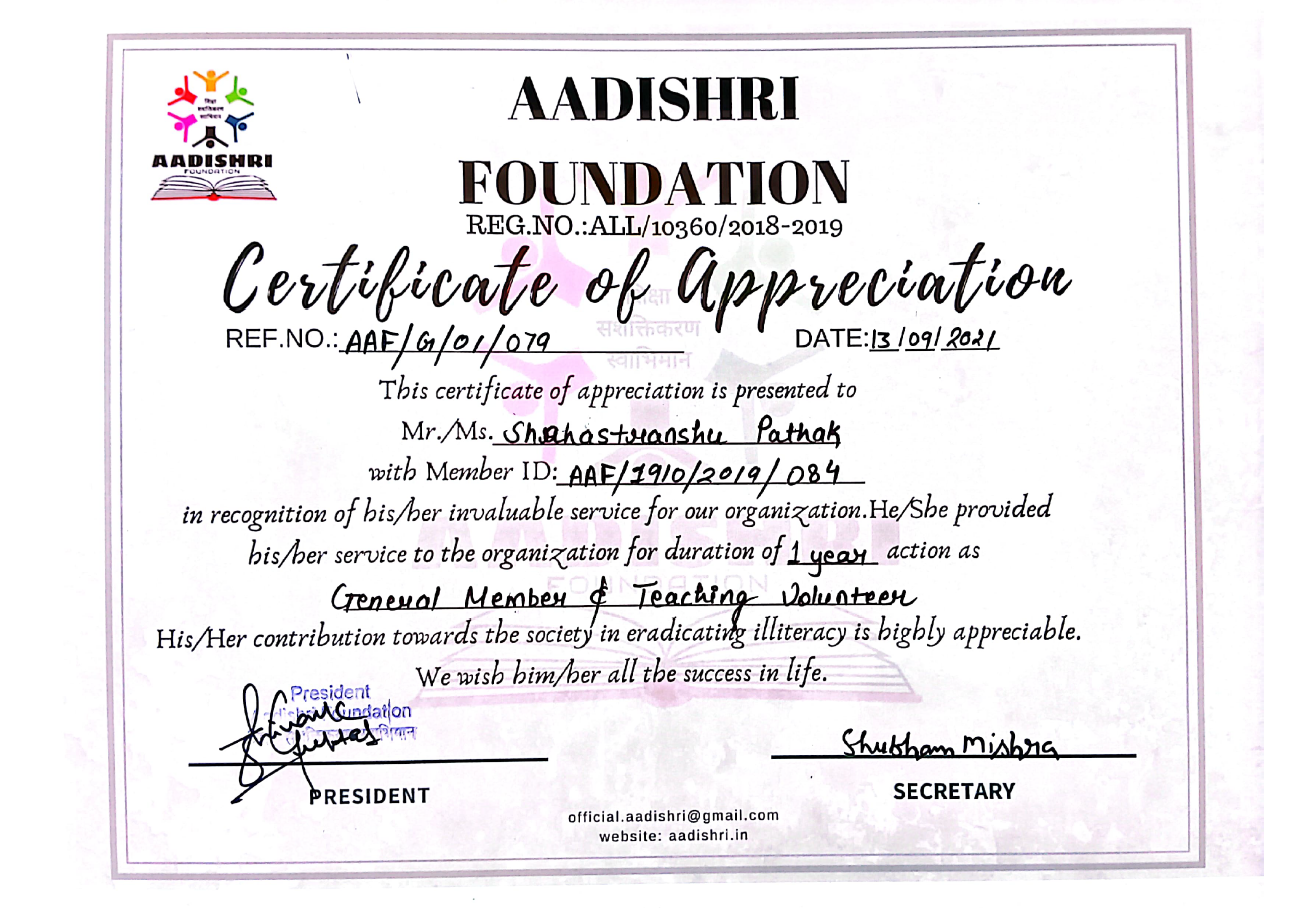 शिक्षा
सशक्तिकरण
स्वाभिमान
AADISHRI
FOUNDATION
AADISHRI
FOUNDATION
REG.NO.:ALL/10360/2018-2019
Certificate of Appreciation
REF.NO.: AAF/G/01/079 DATE:13/09/2021
This certificate of appreciation is presented to
Mr./Ms. Shahastranshu Pathak
with Member ID: AAF/1910/2019/084
in recognition of his/her invaluable service for our organization.He/She provided
his/her service to the organization for duration of 1 year action as
General Member & Teaching Volunteer
His/Her contribution towards the society in eradicating illiteracy is highly appreciable.
We wish him/her all the success in life.
President
Aadishri Foundation
Gupta
Shubham Mishra
PRESIDENT SECRETARY
official.aadishri@gmail.com
website: aadishri.in
शिक्षा
सशक्तिकरण
स्वाभिमान
AADISHRI
FOUNDATION